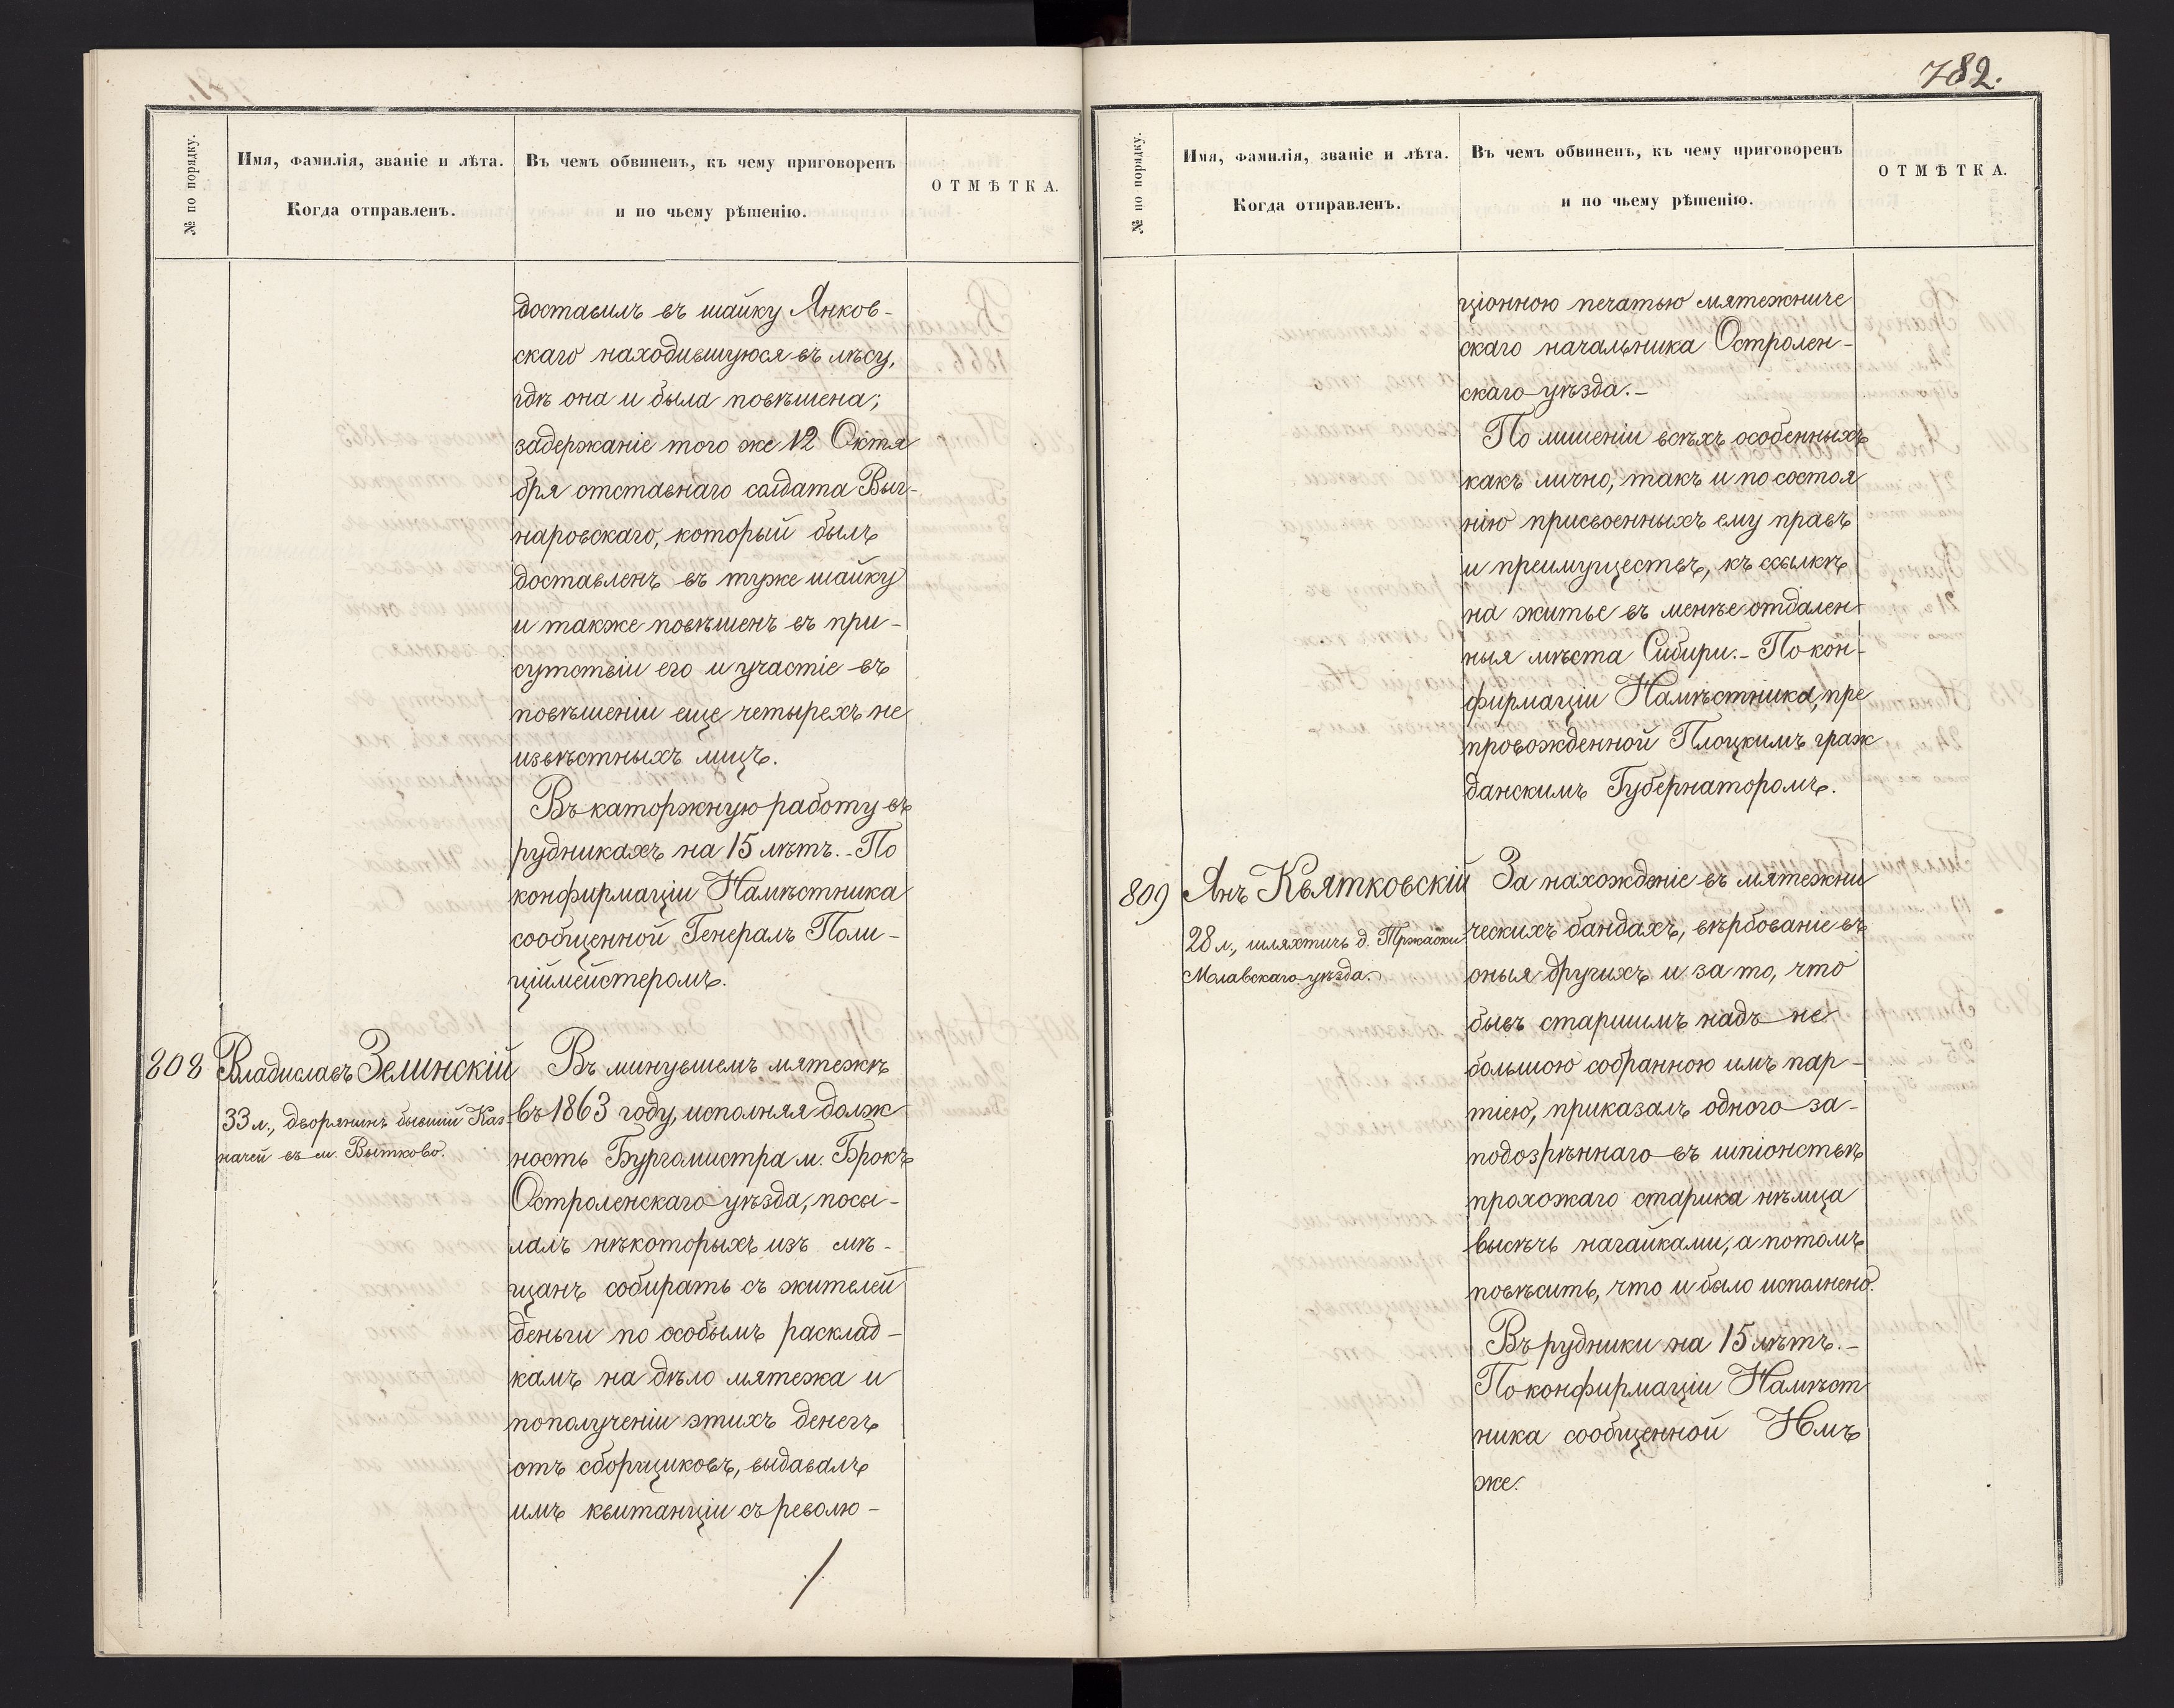 № по порядку.
Имя, фамилія, званіе и лѣта.
Когда отправленъ.
Въ чемъ обвиненъ, къ чему приговоренъ
и по чьему рѣшенію.
ОТМѢТКА.
доставилъ въ шайку Янков-
скаго находившуюся въ лѣсу,
гдѣ она и была повѣшена;
задержаніе того же 12 Октя
бря отставнаго солдата Выг-
наровскаго, который былъ
доставленъ въ туже шайку
и также повѣшенъ въ при-
сутствіи его и участіе въ
повѣшеніи еще четырехъ не
извѣстныхъ лицъ.
Въ каторжную работу въ
рудникахъ на 15 лѣтъ.- По
конфирмаціи Намѣстника
сообщенной Генералъ Поли-
ціймейстеромъ.
808 Владиславъ Зелинскій
33 л., дворянинъ бывшій Каз-
начей въ м. Вытково.
Въ минувшемъ мятежѣ
въ 1863 году, исполняя долж
ность Бургомистра м. Брокъ
Остроленскаго уѣзда, посы-
лалъ нѣкоторыхъ изъ мѣ-
щанъ собирать съ жителей
деньги по особымъ расклад-
камъ на дѣло мятежа и
пополученіи этихъ денегъ
отъ сборщиковъ, выдавалъ
имъ квитанціи съ револю-
./.
782.
№ по порядку.
Имя, фамилія, званіе и лѣта.
Когда отправленъ.
Въ чемъ обвиненъ, къ чему приговоренъ
и по чьему рѣшенію.
ОТМѢТКА.
ціонною печатью мятежниче
скаго начальника Остролен-
скаго уѣзда.-
По лишеніи всѣхъ особенныхъ
какъ лично, такъ и по состоя
нію присвоенныхъ ему правъ
и преимуществъ, къ ссылкѣ
на житье въ менѣе отдален
ныя мѣста Сибири.- По кон-
фирмаціи Намѣстника, пре
провожденной Плоцкимъ граж
данскимъ Губернаторомъ.
809 Янъ Квятковскій
28 л., шляхтичъ д.
Млавскаго уѣзда.
За нахожденіе въ мятежни
ческихъ бандахъ, вербованіе въ
оныя другихъ и за то, что
бывъ старшимъ надъ не
большою собранною имъ пар-
тіею, приказалъ одного за-
подозрѣннаго въ шпіонствѣ
прохожаго старика нѣмца
высѣчь нагайками, а потомъ
повѣсить, что и было исполнено.
Въ рудники на 15 лѣтъ.-
По конфирмаціи Намѣст
ника сообщенной Имъ
же.